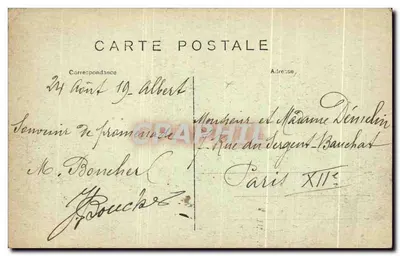 CARTE POSTALE
Correspondance
Adresse
24 Août 19 - Albert
Souvenir de promenade
M. Boucher
J. Boucher
Monsieur et Madame
Rue du Sergent-Bauchat
Paris XIIe